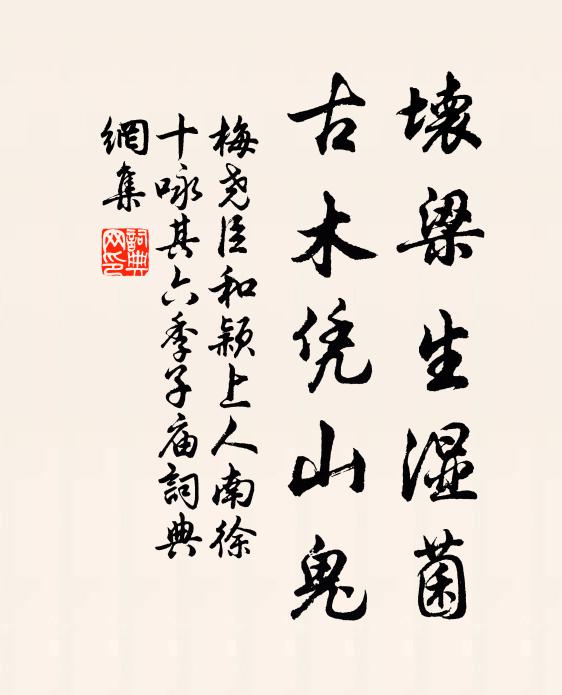 壊梁生湿菌
古木凭山鬼
梅尧臣和颖上人南徐
十咏其六季子庙詞典
網集
詞典
网印